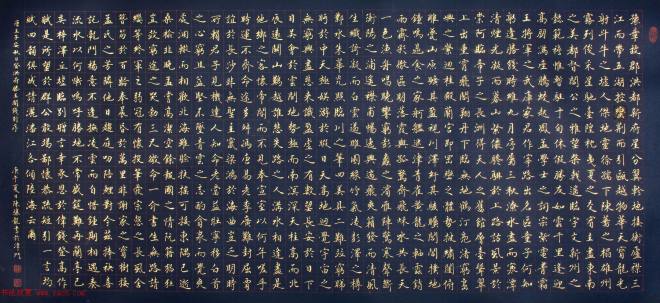 豫章故郡洪都新府星分翼軫地接衡廬襟三
江而帶五湖控蠻荊而引甌越物華天寶龍光
射斗牛之墟人傑地靈徐孺下陳蕃之榻雄州
霧列俊采星馳臺隍枕夷夏之交賓主盡東南
之美都督閻公之雅望棨戟遙臨宇文新州之
懿範襜帷暫駐十旬休假勝友如雲千里逢迎
高朋滿座騰蛟起鳳孟學士之詞宗紫電青霜
王將軍之武庫家君作宰路出名區童子何知
躬逢勝餞時維九月序屬三秋潦水盡而寒潭
清煙光凝而暮山紫儼驂騑於上路訪風景於
崇阿臨帝子之長洲得天人之舊館層巒聳翠
上出重霄飛閣流丹下臨無地鶴汀鳧渚窮島嶼
之縈迴桂殿蘭宮即岡巒之體勢披繡闥俯
雕甍山原曠其盈視川澤紆其駭矚閭閻撲地
鐘鳴鼎食之家舸艦迷津青雀黃龍之舳虹銷
雨霽彩徹區明落霞與孤鶩齊飛秋水共長天
一色漁舟唱晚響窮彭蠡之濱雁陣驚寒聲斷
衡陽之浦遙襟甫暢逸興遄飛爽籟發而清風
生纖歌凝而白雲遏睢園綠竹氣凌彭澤之樽
鄴水朱華光照臨川之筆四美具二難并窮睇
眄於中天極娛遊於暇日天高地迥覺宇宙之
無窮興盡悲來識盈虛之有數望長安於日下
目吳會於雲間地勢極而南溟深天柱高而北
辰遠關山難越誰悲失路之人萍水相逢盡是
他鄉之客懷帝閽而不見奉宣室以何年嗟乎
時運不齊命途多舛馮唐易老李廣難封屈賈
誼於長沙非無聖主竄梁鴻於海曲豈乏明時
所賴君子見機達人知命老當益壯寧移白首
之心窮且益堅不墜青雲之志酌貪泉而覺爽
處涸轍以相歡北海雖賒扶搖可接東隅已逝
桑榆非晚孟嘗高潔空餘報國之情阮籍猖狂
豈效窮途之哭勃三尺微命一介書生無路請
纓等終軍之弱冠有懷投筆愛宗愨之長風舍
簪笏於百齡奉晨昏於萬里非謝家之寶樹接
孟氏之芳鄰他日趨庭叨陪鯉對今茲捧袂喜
托龍門楊意不逢撫凌雲而自惜鍾期相遇奏
流水以何慚嗚呼勝地不常盛筵難再蘭亭已
矣梓澤丘墟臨別贈言幸承恩於偉餞登高作
賦是所望於群公敢竭鄙懷恭疏短引一言均
賦四韻俱成請灑潘江各傾陸海云爾